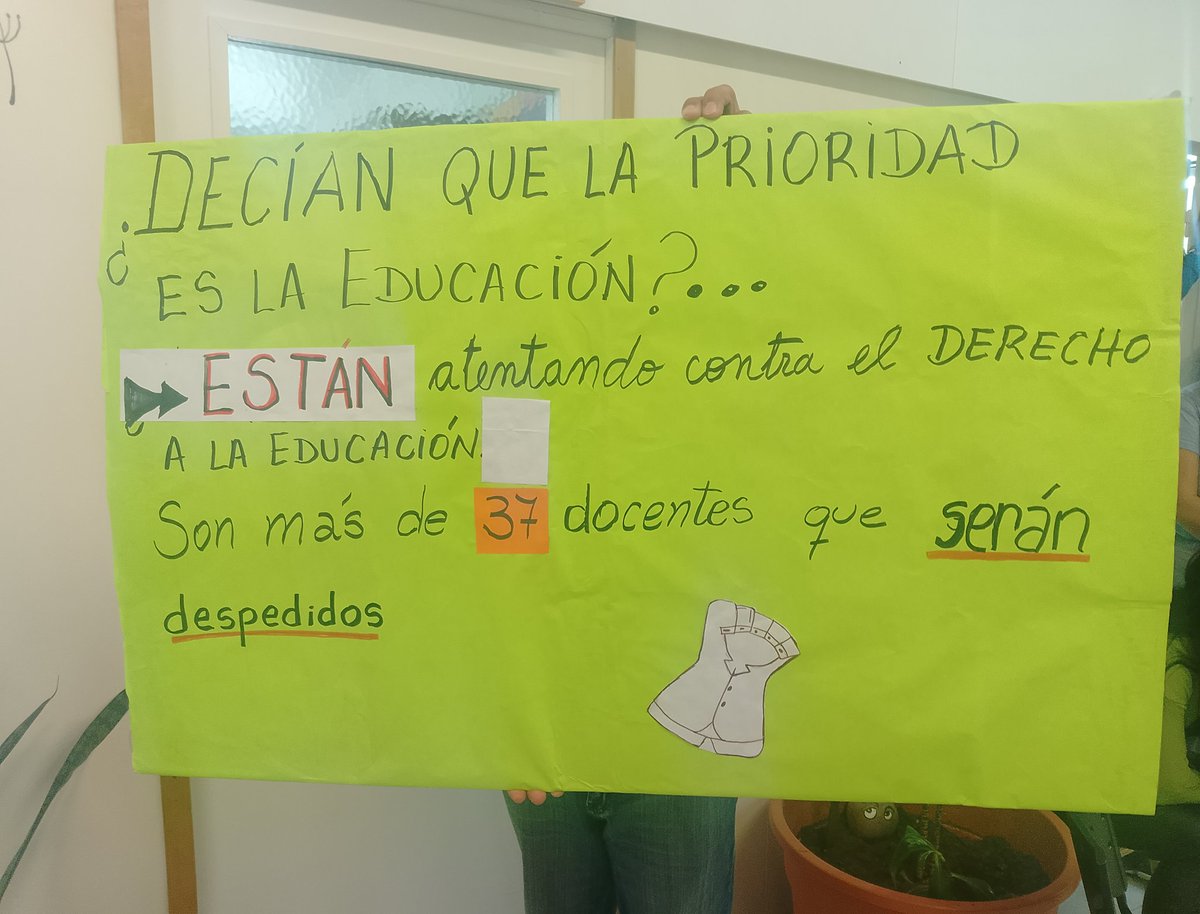 ¿DECÍAN QUE LA PRIORIDAD
ES LA EDUCACIÓN?...
ESTÁN atentando contra el DERECHO
A LA EDUCACIÓN.
Son más de 37 docentes que serán
despedidos